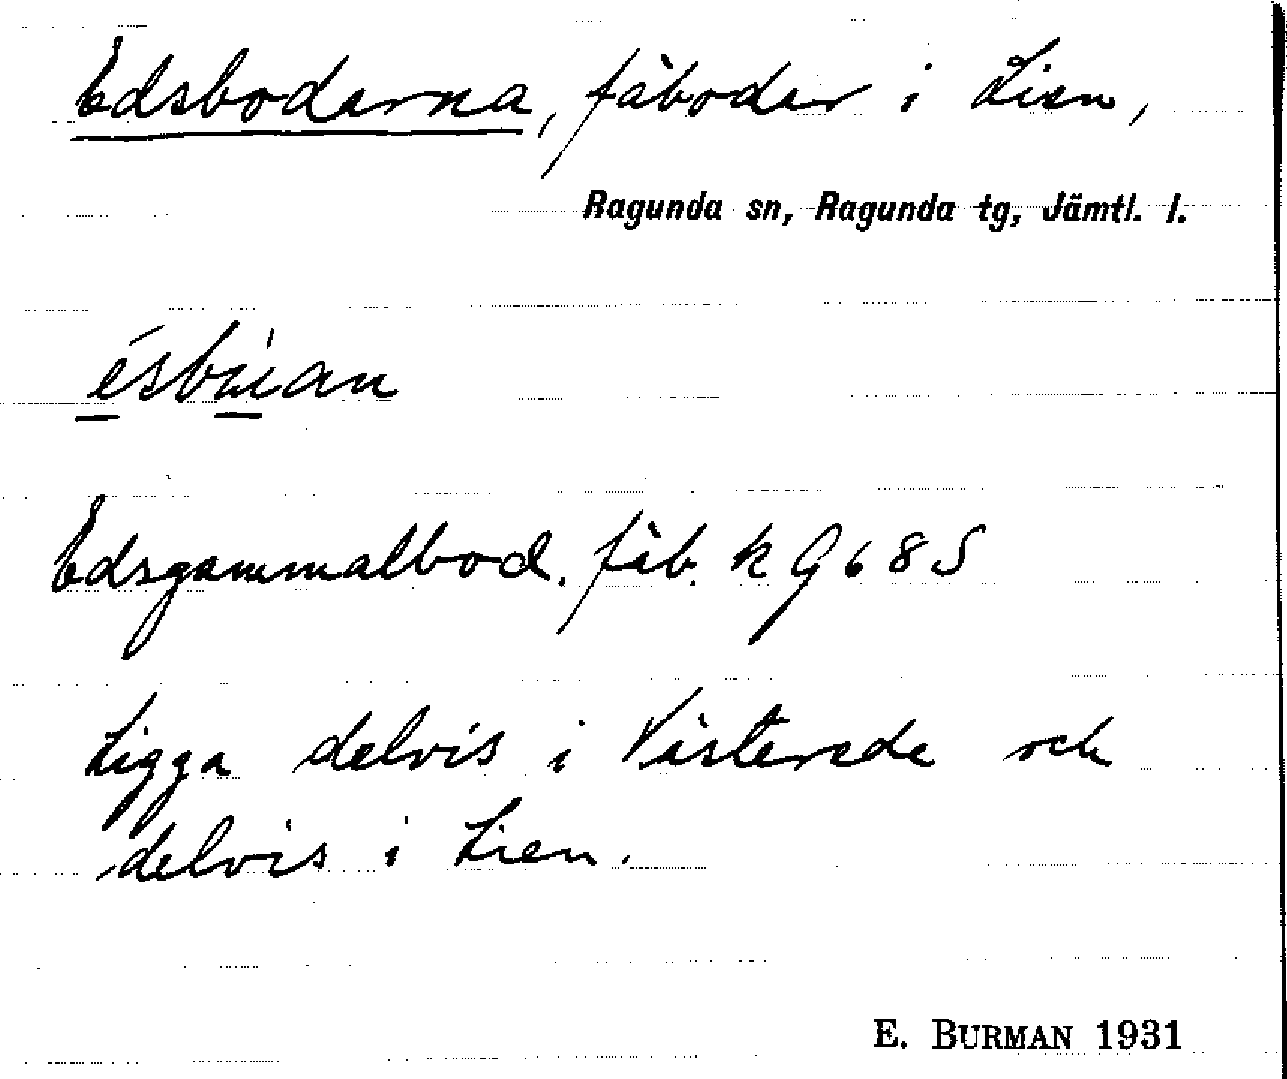 Edsboderna, fäboder i Lien,
Ragunda sn, Ragunda tg, Jämtl. l.
Edsgammalbod. fäb. k G 68 S
Ligga delvis i Västerede och
delvis i Lien.
E. BURMAN 1931